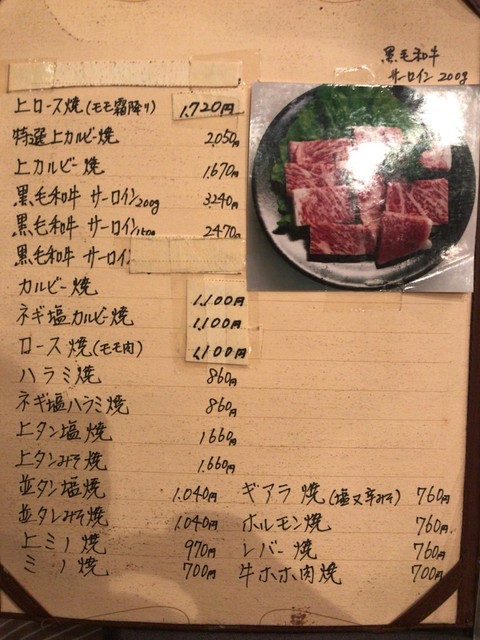 黒毛和牛
サーロイン 200g
上ロース焼(モモ霜降り) 1,720円
特選上カルビー焼 2,050円
上カルビー焼 1,670円
黒毛和牛 サーロイン200g 3240円
黒毛和牛 サーロイン150g 2470円
黒毛和牛 サーロイン
カルビー焼 1,100円
ネギ塩カルビー焼 1,100円
ロース焼(モモ肉) 1,100円
ハラミ焼 860円
ネギ塩ハラミ焼 860円
上タン塩焼 1660円
上タンみそ焼 1,660円
並タン塩焼 1.040円
並タンみそ焼 1.040円
上ミノ焼 970円
ミノ焼 700円
ギアラ焼(塩又辛みそ) 760円
ホルモン焼 760円
レバー焼 760円
牛ホホ肉焼 700円